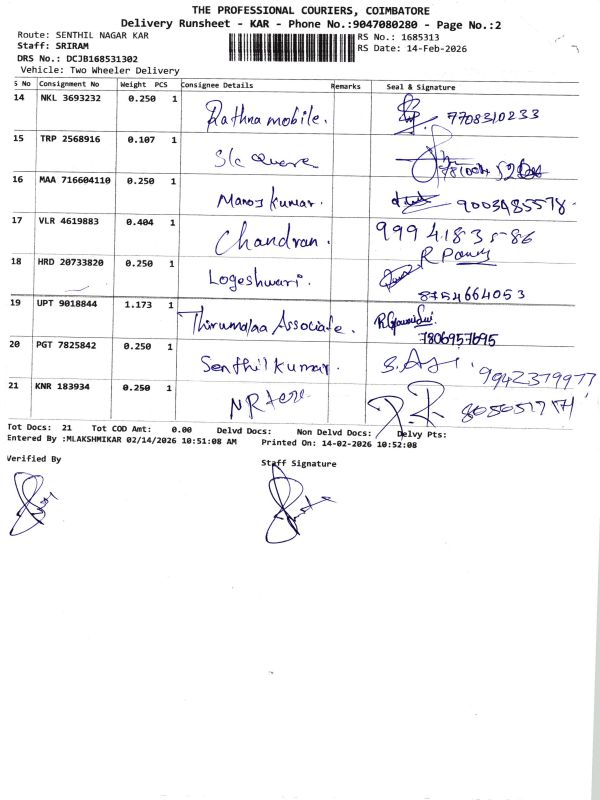 THE PROFESSIONAL COURIERS, COIMBATORE
Delivery Runsheet - KAR - Phone No.:9047080280 - Page No.:2
Route: SENTHIL NAGAR KAR
RS No.: 1685313
Staff: SRIRAM
RS Date: 14-Feb-2026
DRS No.: DCJB168531302
Vehicle: Two Wheeler Delivery
S No Consignment No Weight PCS Consignee Details Remarks Seal & Signature
14 NKL 3693232 0.250 1 Rathna mobile. 7708310233
15 TRP 2568916 0.107 1
16 MAA 716604110 0.250 1 Manoj Kumar. 9003485578
17 VLR 4619883 0.404 1 Chandran. 999 4183586
18 HRD 20733820 0.250 1 Logeshwari. 8754664053
19 UPT 9018844 1.173 1 Thirumalaa Associate. 7806957695
20 PGT 7825842 0.250 1 Senthil Kumar. 9942379977
21 KNR 183934 0.250 1
Tot Docs: 21 Tot COD Amt: 0.00 Delvd Docs: Non Delvd Docs: Delvy Pts:
Entered By :MLAKSHMIKAR 02/14/2026 10:51:08 AM Printed On: 14-02-2026 10:52:08
Verified By
Staff Signature